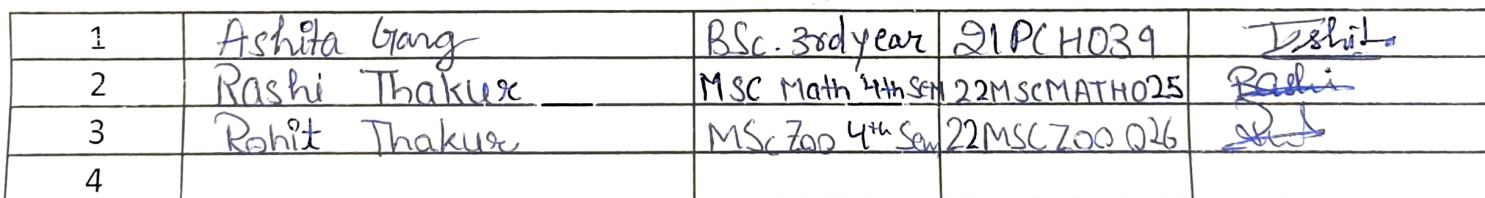 1 Ashita Gang BSc. 3rd year 21PCH039 Ishit
2 Rashi Thakur MSC Math 4th SEM 22MSCMATH025 Rashi
3 Rohit Thakur MSc Zoo 4th Sem 22MSCZOO026
4